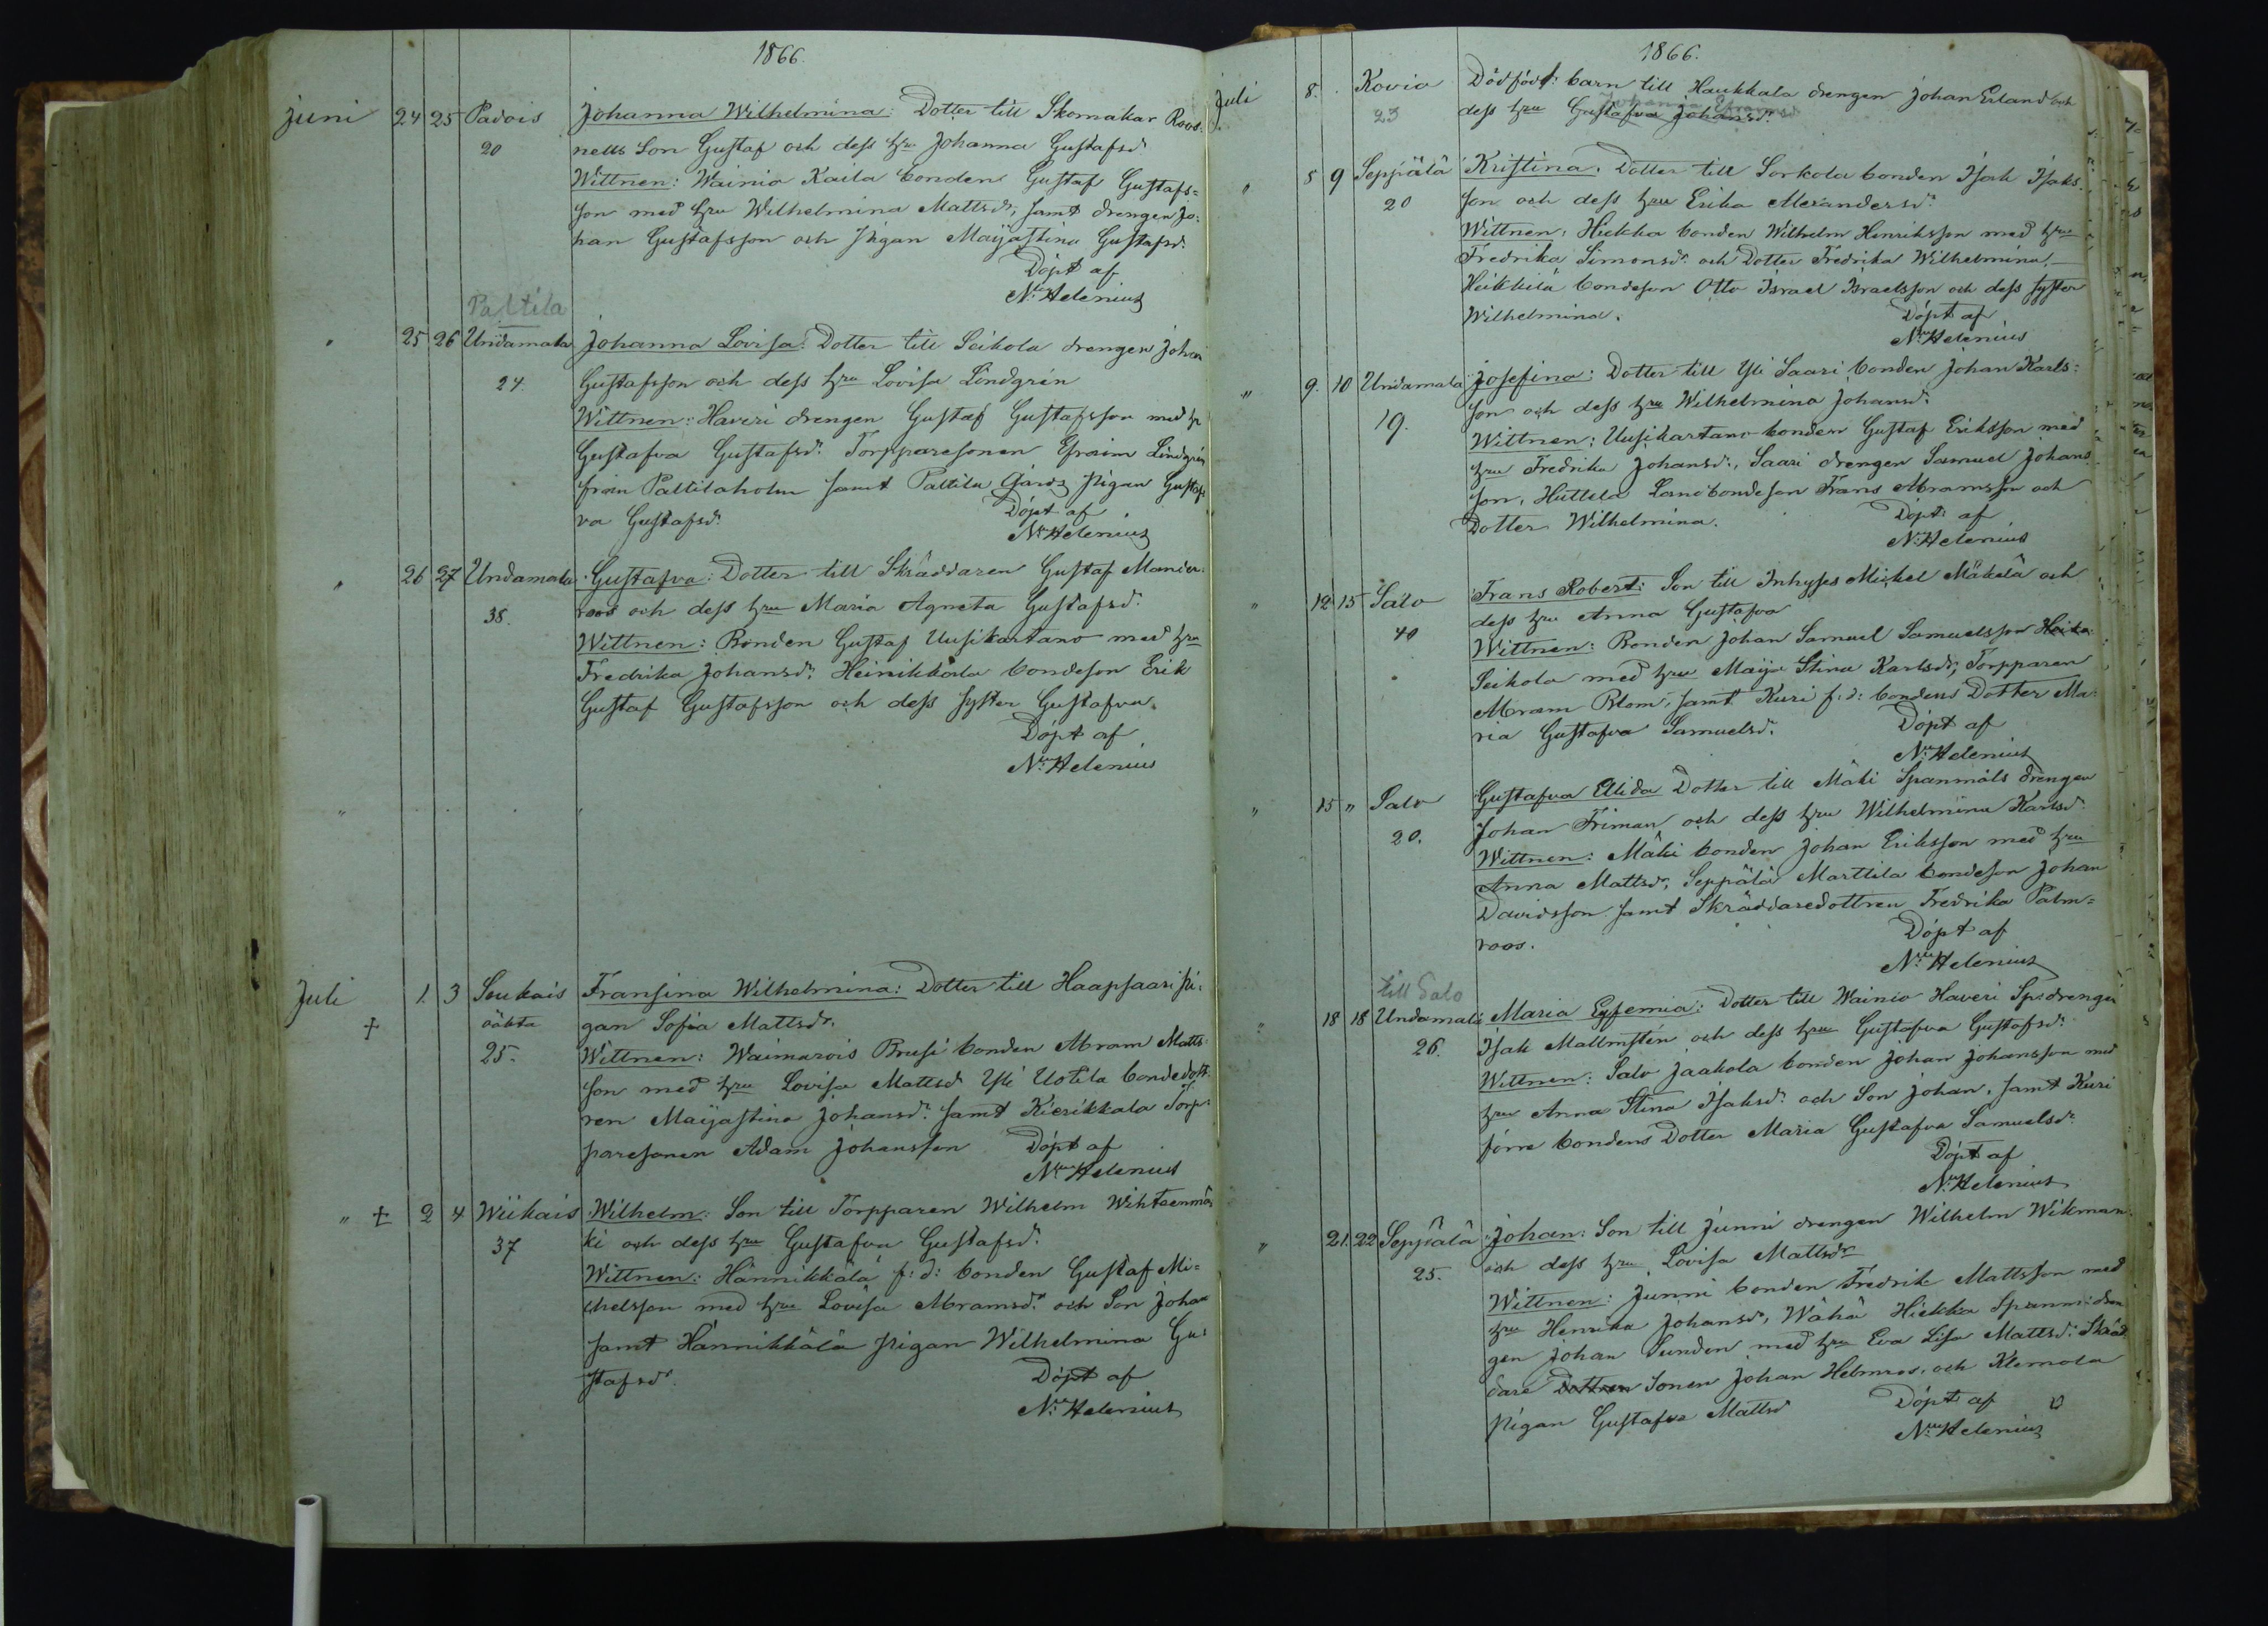 1866.
Juni 24 25 Padois Johanna Wilhelmina: Dotter till Skomakar Roos-
20 nells Son Gustaf och dess hru Johanna Gustafsd:
Wittnen: Wainio Kaila bonden Gustaf Gustafs=
son med hru Wilhelmina Mattsdr, samt drengen Jo:
han Gustafsson och Pigan Maijastina Gustafsd:
Döpt af
Nils Helenius
Paltila
" 25 26 Undamala Johanna Lovisa: Dotter till Seikola drengen Johan
24. Gustafsson och dess hru Lovisa Lindgrén
Wittnen: Haveri drengen Gustaf Gustafsson med hr
Gustafva Gustafsd: Torpparesonen Efraim Lindgrén
från Paltilaholm samt Paltila Gårds Pigan Gustaf
va Gustafsd: Döpt af
Nils Helenius
" 26 27 Undamala Gustafva: Dotter till Skräddaren Gustaf Mander-
38. roos och dess hru Maria Agneta Gustafsd:
Wittnen: Bonden Gustaf Uusikartano med hru
Fredrika Johansd: Heinikkala bondeson Erik
Gustaf Gustafsson och dess syster Gustafva.
Döpt af
Nils Helenius
Juli 1. 3 Soukais Fransina Wilhelmina: Dotter till Haapsaari Pi:
† oäkta gan Sofia Mattsdr.
25. Wittnen: Waimarois Prusi bonden Abram Matts-
son med hru Lovisa Mattsd Yli Uotila bondedott
ren Maijastina Johansd: samt Kierikkala Torp-
paresonen Adam Johansson Döpt af
Nils Helenius
" † 2 4 Wiikais Wilhelm: Son till Torpparen Wilhelm Wihteenmä
37 ki och dess hru Gustafva Gustafsd:
Wittnen: Hännikkälä f: d: bonden Gustaf Mi=
chelsson med hru Lovisa Abramsd: och Son Johan
samt Hännikkälä Pigan Wilhelmina Gu:
stafsdr. Döpt af
Nils Helenius
1866.
Juli 8. Kovio Dödfödt: barn till Haukkala drengen Johan Erland och
Johanna Efraimsd
23 dess hru Gustafva Johansd:
" 8 9 Seppälä Kristina: Dotter till Sorkola bonden Isak Isaks-
20 son och dess hru Erika Alexandersd:
Wittnen: Hiekka bonden Wilhelm Henriksson med hru
Fredrika Simonsd: och Dotter Fredrika Wilhelmina,
Heikkilä bondeson Otto Israel Israelsson och dess syster
Wilhelmina. Döpt af
Nils Helenius
" 9. 10 Undamala Josefina: Dotter till Yli Saari bonden Johan Karls:
19. son och dess hru Wilhelmina Johansd:
Wittnen: Uusikartano bonden Gustaf Eriksson med
hru Fredrika Johansd:, Saari drengen Samuel Johans
son, Huttila Landbondeson Frans Abramsson och
Dotter Wilhelmina. Döpt af
Nils Helenius
" 12 15 Salo Frans Robert: Son till Inhyses Mickel Mäkelä och
40 dess hru Anna Gustafva
Wittnen: Bonden Johan Samuel Samuelsson
Seikola med hru Maija Stina Karlsdr, Torpparen
Abram Blom, samt Kuri f: d: bondens Dotter Ma-
ria Gustafva Samuelsd: Döpt af
Nils Helenius
" 15 " Salo Gustafva Elida Dotter till Mäki Spanmåls drengen
20. Johan Friman och dess hru Wilhelmina Karlsd
Wittnen: Mäki bonden Johan Eriksson med hru
Anna Mattsdr, Seppälä Marttila bondeson Johan
Davidsson samt Skräddaredottren Fredrika Palm=
roos. Döpt af
Nils Helenius
till Salo
" 18 18 Undamala Maria Eyfemia: Dotter till Wainio Haveri Sp:drengen
26. Isak Mallmstén och dess hru Gustafva Gustafsd:
Wittnen: Salo Jaakola bonden Johan Johansson med
hru Anna Stina Isaksd: och Son Johan, samt Kuri
förre bondens Dotter Maria Gustafva Samuelsd:
Döpt af
Nils Helenius
" 21. 22 Seppälä Johan: Son till Junni drengen Wilhelm Wikman
25. och dess hru Lovisa Mattsdr
Wittnen: Junni bonden Fredrik Mattsson med
hru Henrika Johansd, Wähä Hiekka Spanm: dren
gen Johan Sundon med hru Eva Lisa Mattsd: Skräd
dare dottren Sonen Johan Helmros, och Klemola
Pigan Gustafva Mattsd Döpt af
Nils Helenius